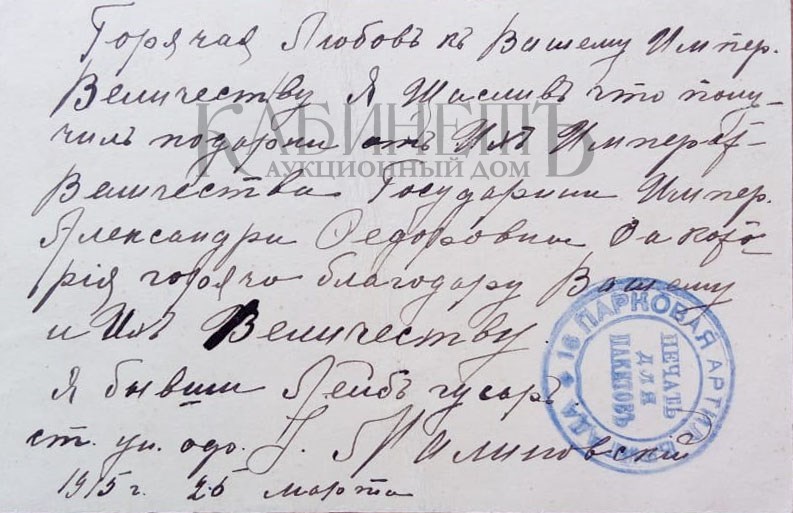 Горячая Любовъ къ Вашему Импер.
Величеству Я Щасливъ что полу-
чилъ подарки отъ Ихъ Императ-
Величества Государини Импер.
Александри Федоровни За кото-
рія горячо благодару Вашему
и Ихъ Величеству.
Я бывши Лейбъ гусаръ
ст. ун. офо.
1915 г. 26 марта
КАБИНЕТЪ
АУКЦИОННЫЙ ДОМ
16 ПАРКОВАЯ АРТИЛ. БРИГАДА
ПЕЧАТЬ
ДЛЯ
ПАКЕТОВЪ